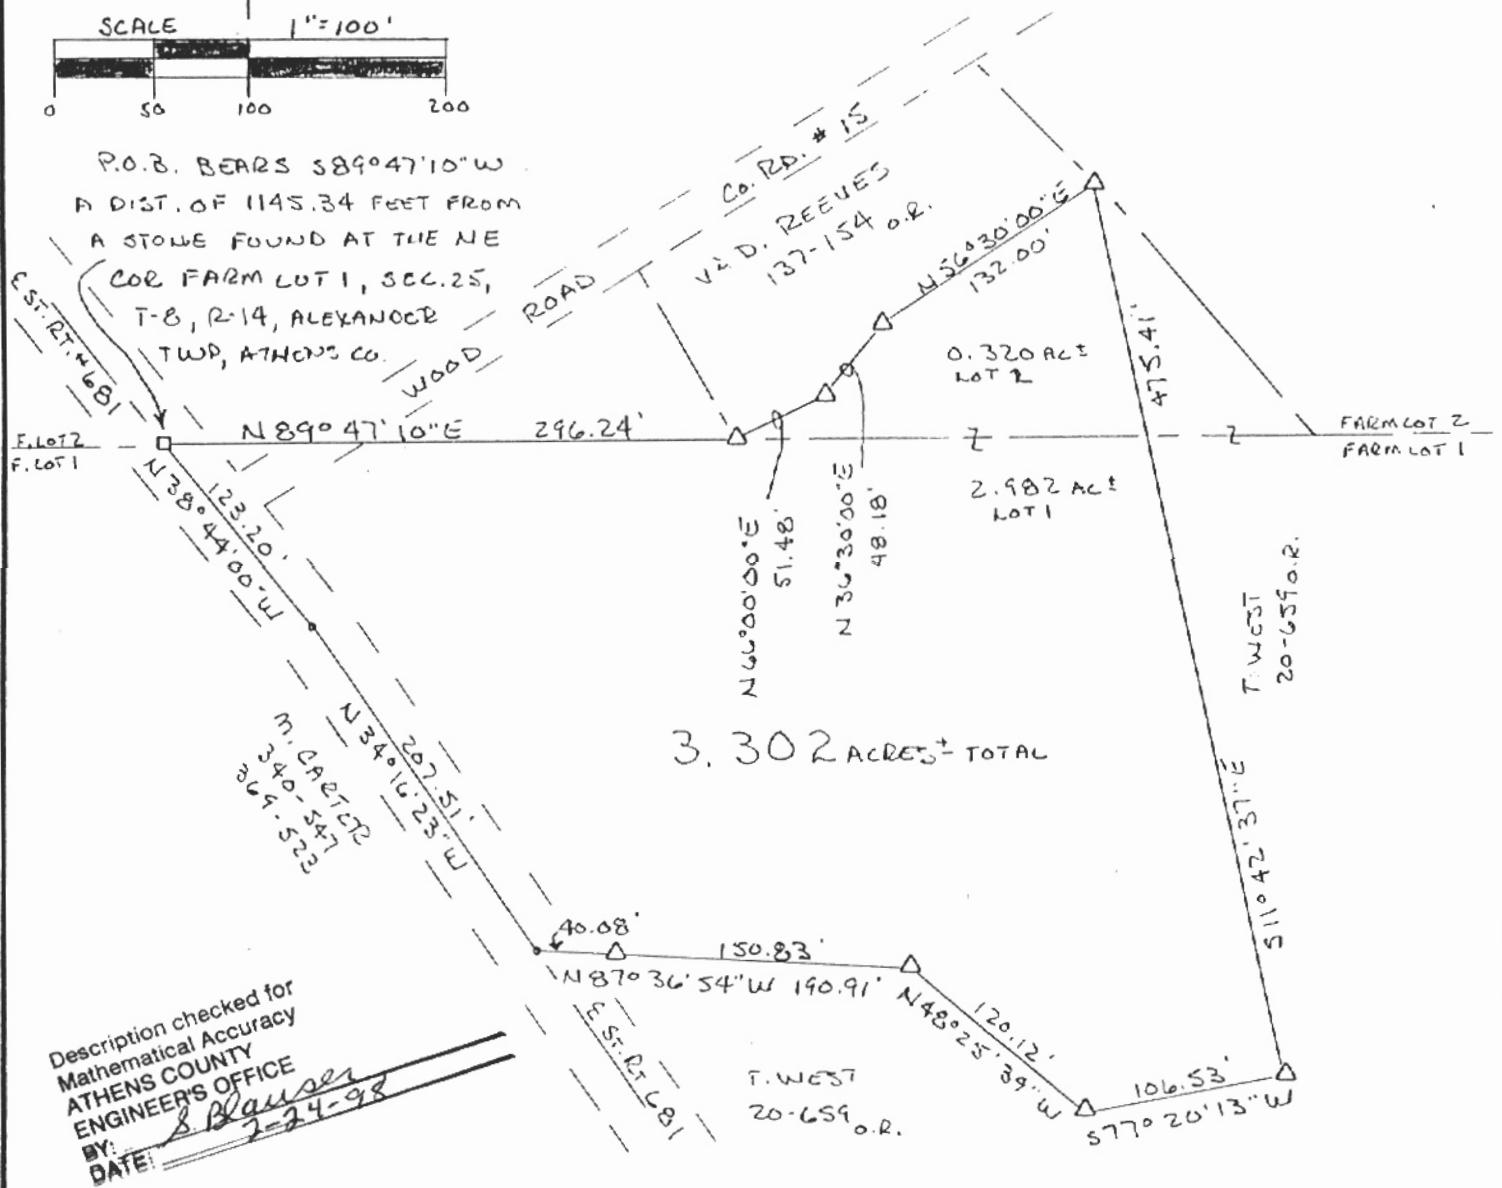 SCALE 1"=100'
0 50 100 200
P.O.B. BEARS S89°47'10"W
A DIST. OF 1145.34 FEET FROM
A STONE FOUND AT THE NE
COR FARM LOT 1, SEC. 25,
T-8, R-14, ALEXANDER
TWP, ATHENS CO.
℄ ST. RT. # 681
WOOD ROAD CO. RD. # 15
V & D. REEVES
137-154 O.R.
N 56°30'00"E
132.00'
0.320 AC±
LOT 2
475.41'
S11°42'37"E
F. LOT 2
F. LOT 1
N 89°47'10"E 296.24'
FARM LOT 2
FARM LOT 1
2.982 AC±
LOT 1
N66°00'00"E
51.48'
N 36°30'00"E
48.18'
123.20'
N 38°44'00"W
T. WEST
20-659 O.R.
3.302 ACRES± TOTAL
207.51'
N 34°16'23"E
M. CARTER
340-547
369-523
40.08'
150.83'
N 87°36'54"W 190.91'
120.12'
N48°25'39"W
106.53'
S77°20'13"W
℄ ST. RT 681
T. WEST
20-659 O.R.
Description checked for
Mathematical Accuracy
ATHENS COUNTY
ENGINEER'S OFFICE
BY: S. Blauser
DATE: 2-24-98